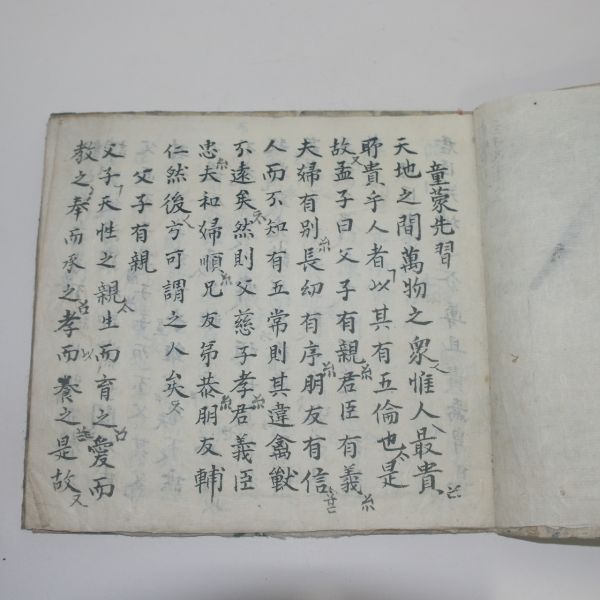 童蒙先習
天地之間萬物之衆惟人最貴
所貴乎人者以其有五倫也是
故孟子曰父子有親君臣有義
夫婦有別長幼有序朋友有信
人而不知有五常則其違禽獸
不遠矣然則父慈子孝君義臣
忠夫和婦順兄友弟恭朋友輔
仁然後方可謂之人矣
父子有親
父子天性之親生而育之愛而
教之奉而承之孝而養之是故